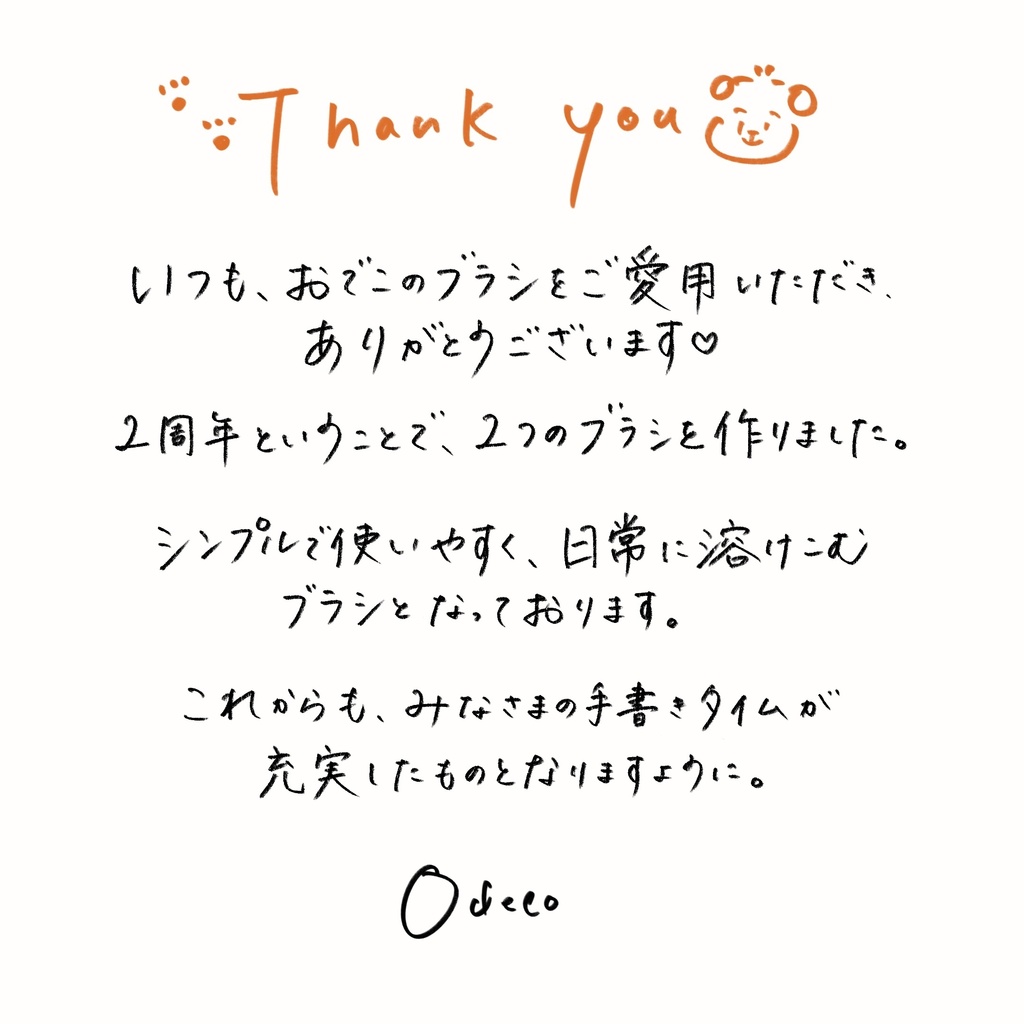 Thank you
いつも、おでこのブラシをご愛用いただき、
ありがとうございます♡
2周年ということで、2つのブラシを作りました。
シンプルで使いやすく、日常に溶けこむ
ブラシとなっております。
これからも、みなさまの手書きタイムが
充実したものとなりますように。
Odeco